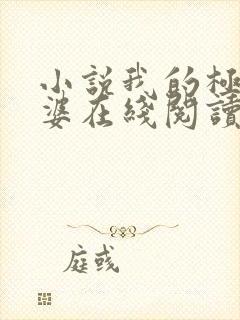 小说我的极
婆在线阅读
庭彧